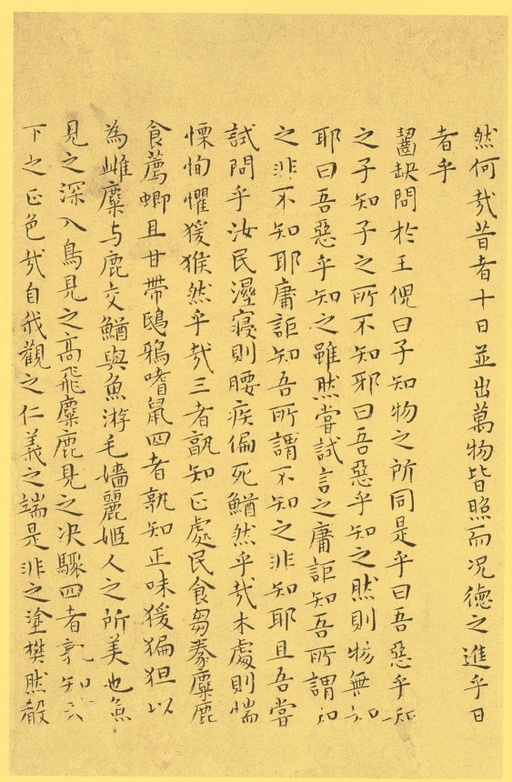 然何哉昔者十日並出萬物皆照而况德之進乎日
者乎
齧缺問於王倪曰子知物之所同是乎曰吾惡乎知
之子知子之所不知邪曰吾惡乎知之然則物無知
耶曰吾惡乎知之雖然嘗試言之庸詎知吾所謂知
之非不知耶庸詎知吾所謂不知之非知耶且吾嘗
試問乎汝民濕寢則腰疾偏死鰌然乎哉木處則惴
慄恂懼猨猴然乎哉三者孰知正處民食芻豢麋鹿
食薦蝍且甘帶鴟鴉嗜鼠四者孰知正味猨猵狙以
為雌麋与鹿交鰌與魚游毛嬙麗姬人之所美也魚
見之深入鳥見之高飛麋鹿見之决驟四者孰知天
下之正色哉自我觀之仁義之端是非之塗樊然殽